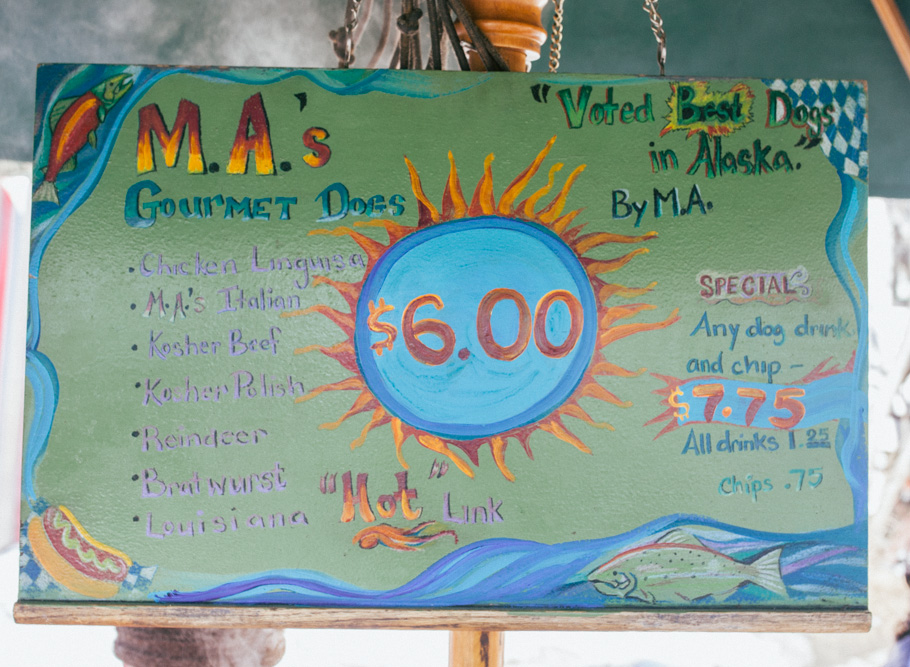 M.A.'s
Gourmet Dogs
"Voted Best Dogs
in Alaska."
By M.A.
• Chicken Linguisa
• M.A.'s Italian
• Kosher Beef
• Kosher Polish
• Reindeer
• Bratwurst
• Louisiana "Hot" Link
$6.00
SPECIALS
Any dog drink
and chip -
$7.75
All drinks 1.25
Chips .75